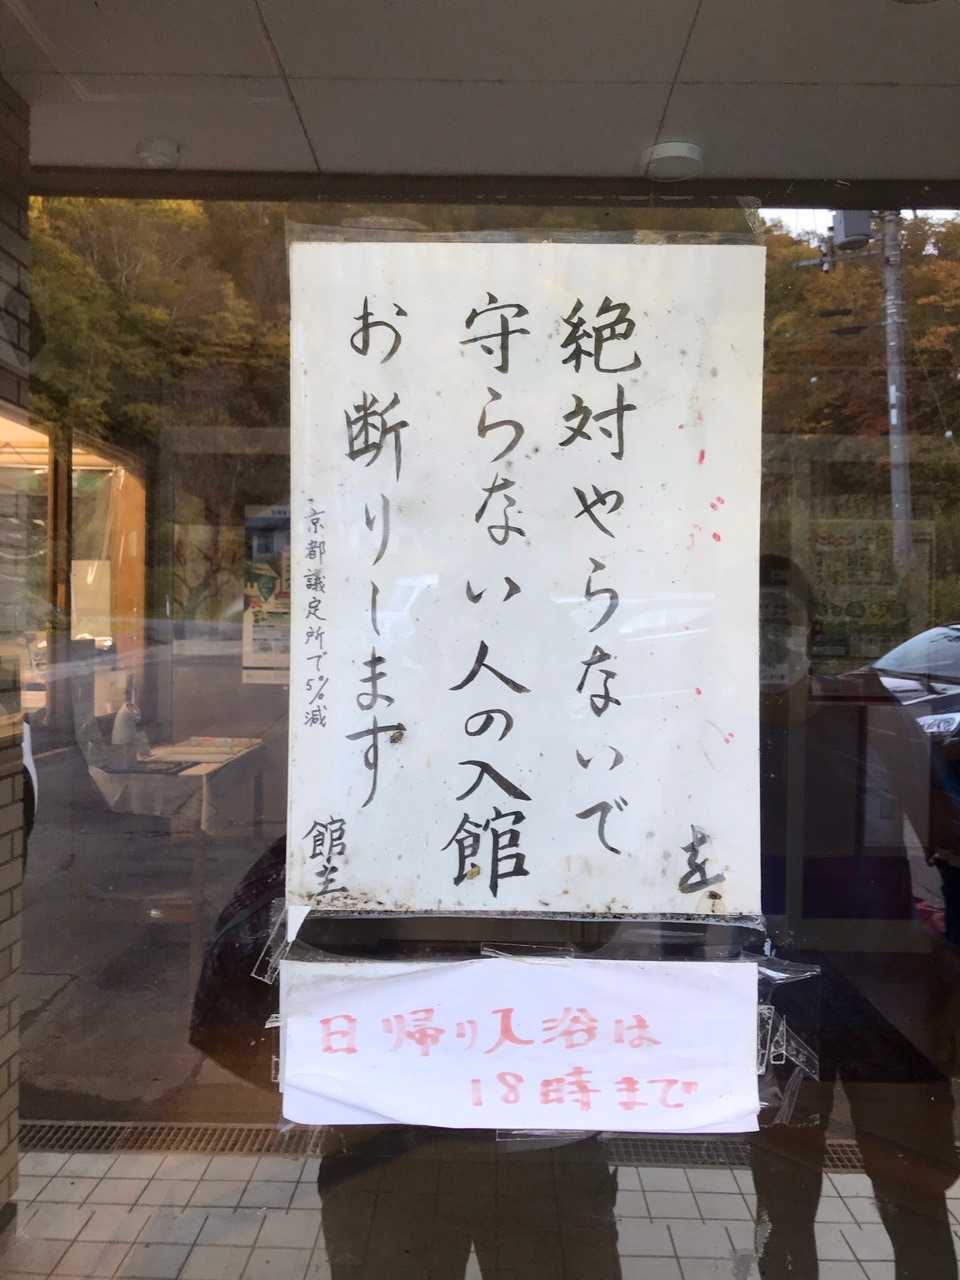 を
絶対やらないで
守らない人の入館
お断りします
京都議定所で5%減
館主
日帰り入浴は
18時まで